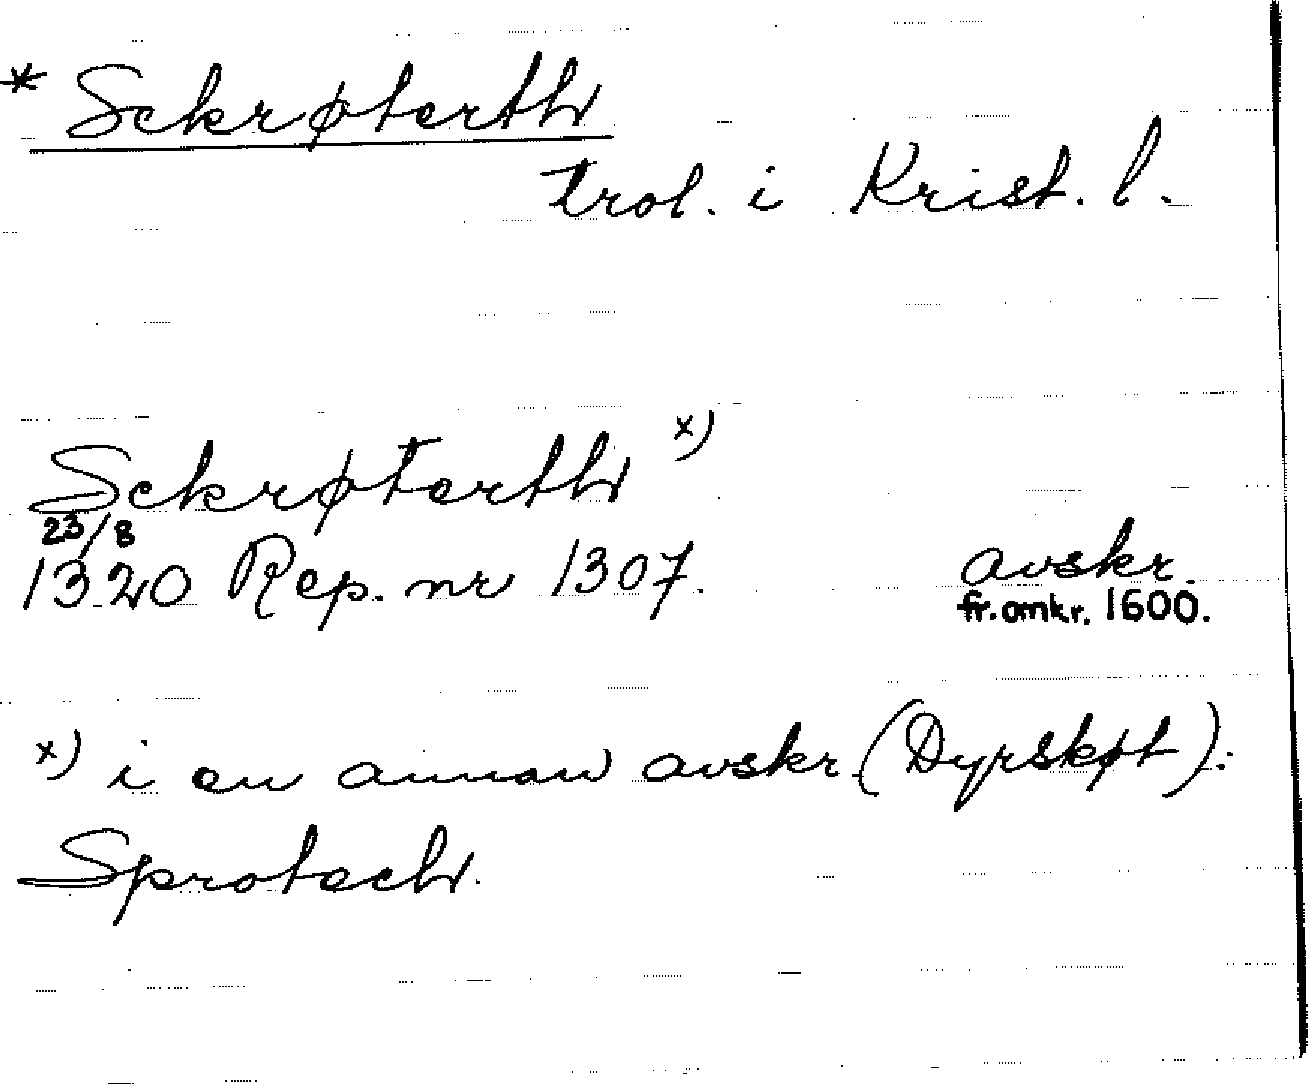 * Sckrøterth
trol. i Krist. l.
Sckrøterth x)
23/8
1320 Rep. nr 1307. avskr.
fr. omkr. 1600.
x) i en annan avskr. (Dyrskøt):
Sprotech.